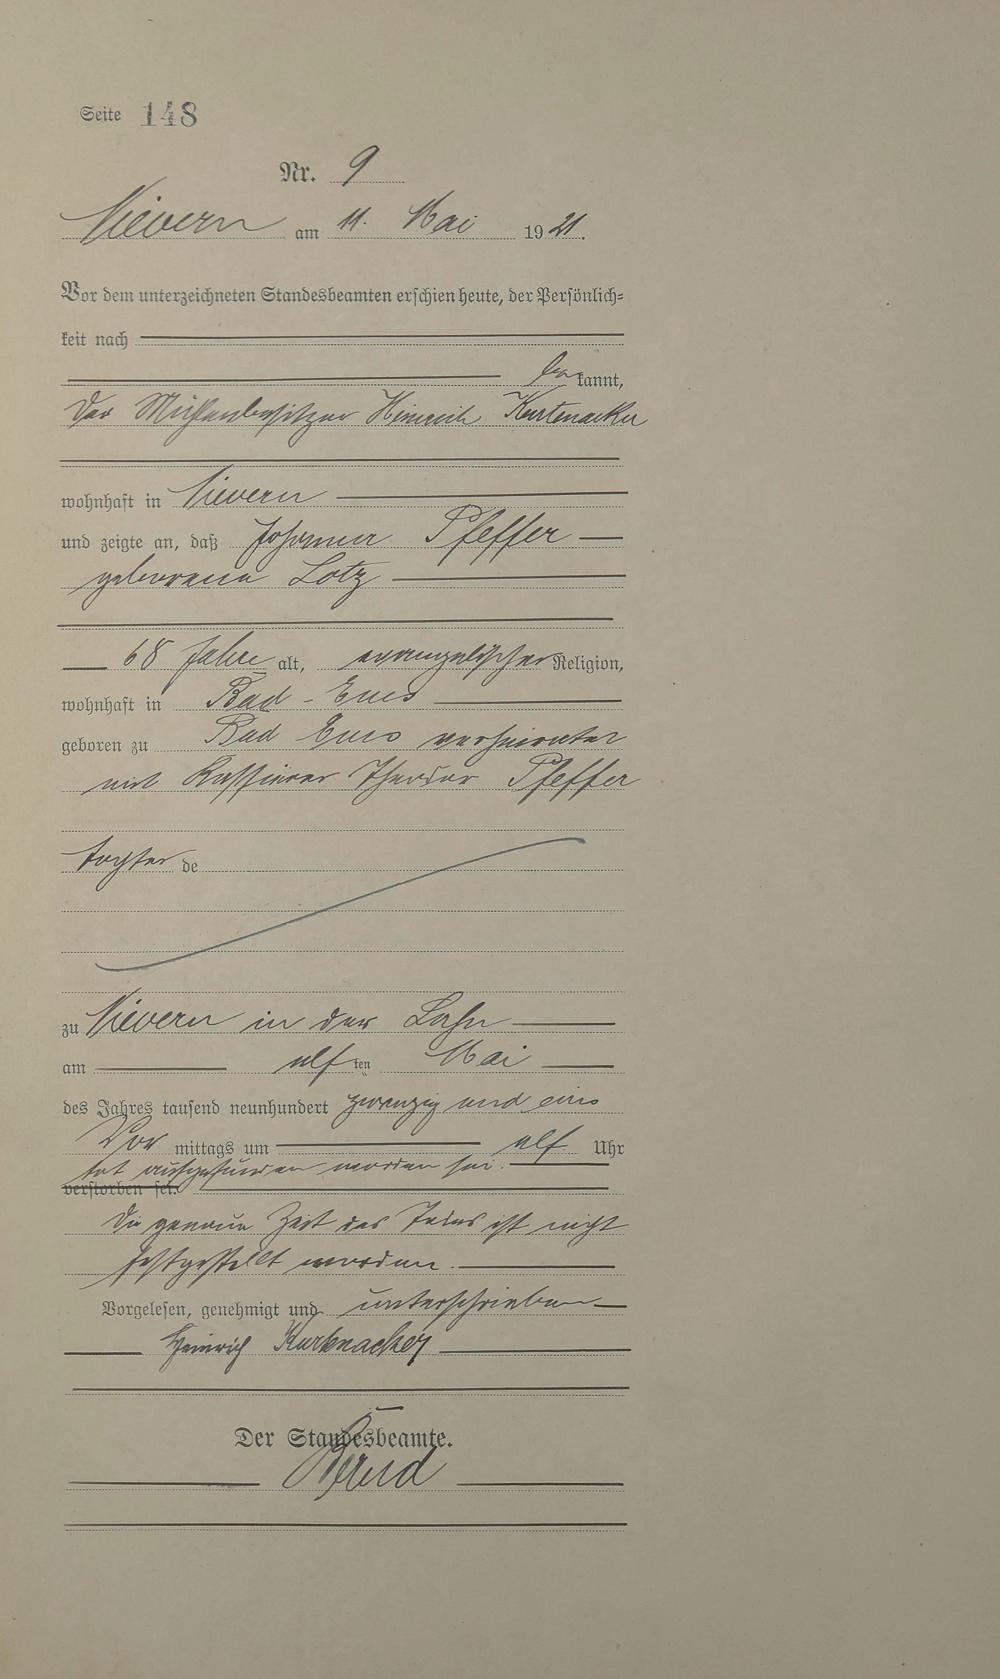 Seite 148
Nr. 9
Nievern am 11. Mai 1921.
Vor dem unterzeichneten Standesbeamten erschien heute, der Persönlich-
keit nach
bekannt,
der Mühlenbesitzer Heinrich Kurtenacker
wohnhaft in Nievern
und zeigte an, daß Johanna Pfeffer
geborene Lotz
68 Jahre alt, evangelischer Religion,
wohnhaft in Bad-Ems
geboren zu Bad Ems verheiratet
mit Kassierer Theodor Pfeffer
Tochter de
zu Nievern in der Lahn
am elften Mai
des Jahres tausend neunhundert zwanzig und eins
Vor mittags um elf Uhr
tot aufgefunden worden sei.
verstorben sei.
Die genaue Zeit des Todes ist nicht
festgestellt worden.
Vorgelesen, genehmigt und unterschrieben
Heinrich Kurtenacker
Der Standesbeamte.